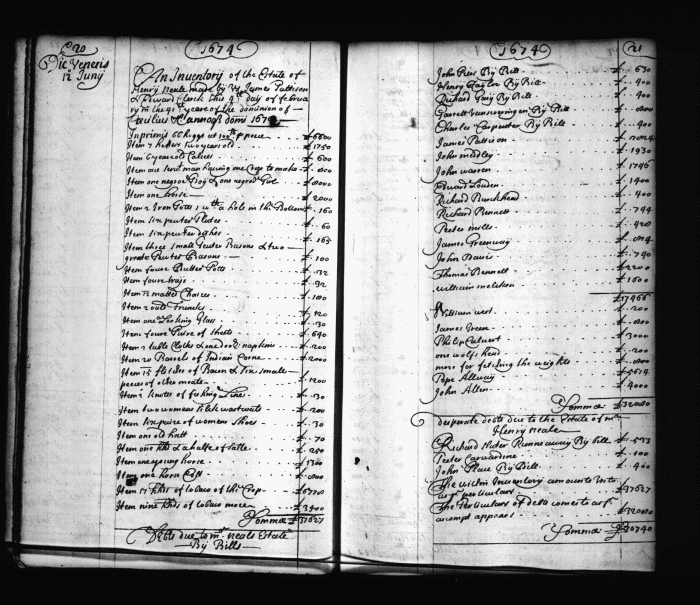 20
1674
Die Veneris
12 Junij
An Inventory of the Estate of
Henry Neale made by us James Pattison
& Edward Clerck this day of februa
ry in the yeare of the dominion of
Cecilius &c annoq Domi 1673
Inprimis 60 hoggs at 110 p piece 6600
Item 7 heifers two years old 1750
Item 6 yeare old Calves 600
Item one man having one Crop to make
Item one negroe Boy & one negroe Girl
Item one horse 2000
Item 2 Iron Potts 1 with a hole in the Bottom 160
Item six peuter Plates 60
Item six peuter dishes 165
Item three small Peuter Basons & two
great Peuter Basons 100
Item foure Butter Potts 32
Item foure trays 32
Item matted Chaires 100
Item 2 ould Trunks 120
Item one Looking Glass 30
Item foure Paire of sheets 640
Item 2 table Cloths & one doz: napkins 200
Item 20 Barrel of Indian Corne 2000
Item 15 flitches of Bacon & six small
pieces of other meate 1200
Item 2 of fishing Line 30
Item two womens silck wastcoats 200
Item six paire of womens shoes 30
Item one old hatt 70
Item one & a halfe of salte 250
Item one young horse 1300
Item one horse Colt
Item 17 hhds of tobaco of this Crop 6770
Item nine hhds of tobaco more 3400
Somma 37627
Debts due to mr neals Estate
By Bills
1674
21
John Rees By Bill 630
Henry Taylor By Bill 400
Richard Gary By Bill 400
Garrett Vansweringen By Bill
Charles Carpenter By Bill 400
James Pattison
John medley 1930
John warren 1746
Edward Louden 1400
Richard Burckhead 400
Richard Bennett 744
Peeter mills 420
James Greenway
John Davis 740
Thomas Bennett 2200
william melchen 1600
17466
William west 200
James Green
Philip Calvert 3000
one wolfs head 200
more for fetching the weights
Pope Allvay 5614
John Allen 4000
Somma 32080
Desperate debts due to the Estate of mr
Henry neale
Richard Nuter Runneaway By bill 533
Peeter Carwardine 100
John Place By Bill 400
The within Inventory amounts unto
as p particulars 37627
The Perticulars of debts comes to as p
accompt appears
Somma 70740